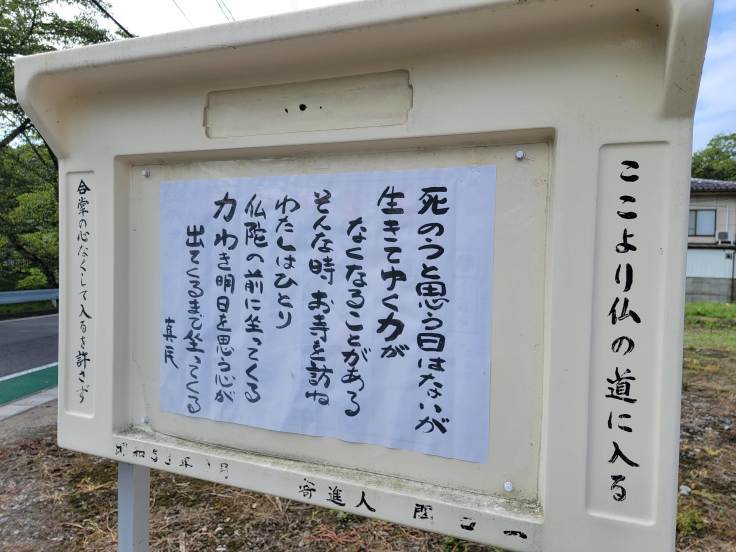 ここより仏の道に入る
死のうと思う日はないが
生きてゆく力が
なくなることがある
そんな時お寺を訪ね
わたしはひとり
仏陀の前に坐ってくる
力わき明日を思う心が
出てくるまで坐ってくる
真民
合掌の心なくして入るを許さず
寄進人